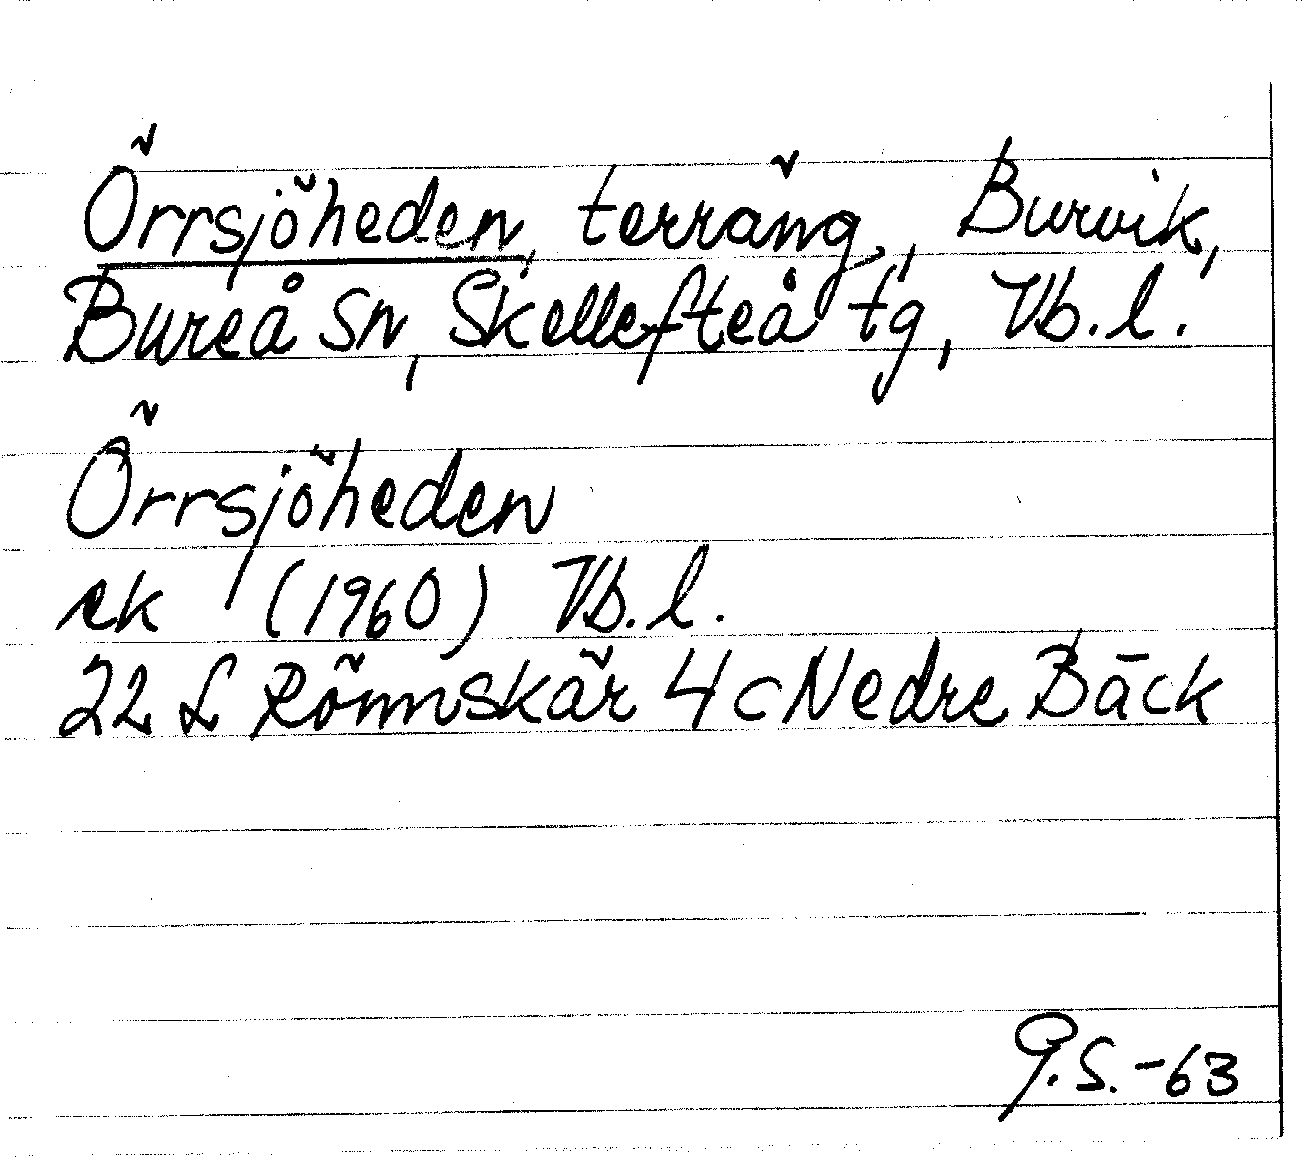 Örrsjöheden, terräng, Burvik,
Bureå sn, Skellefteå tg, Vb. l.
Örrsjöheden
ek (1960) Vb. l.
22 L Rönnskär 4 c Nedre Bäck
G.S.-63